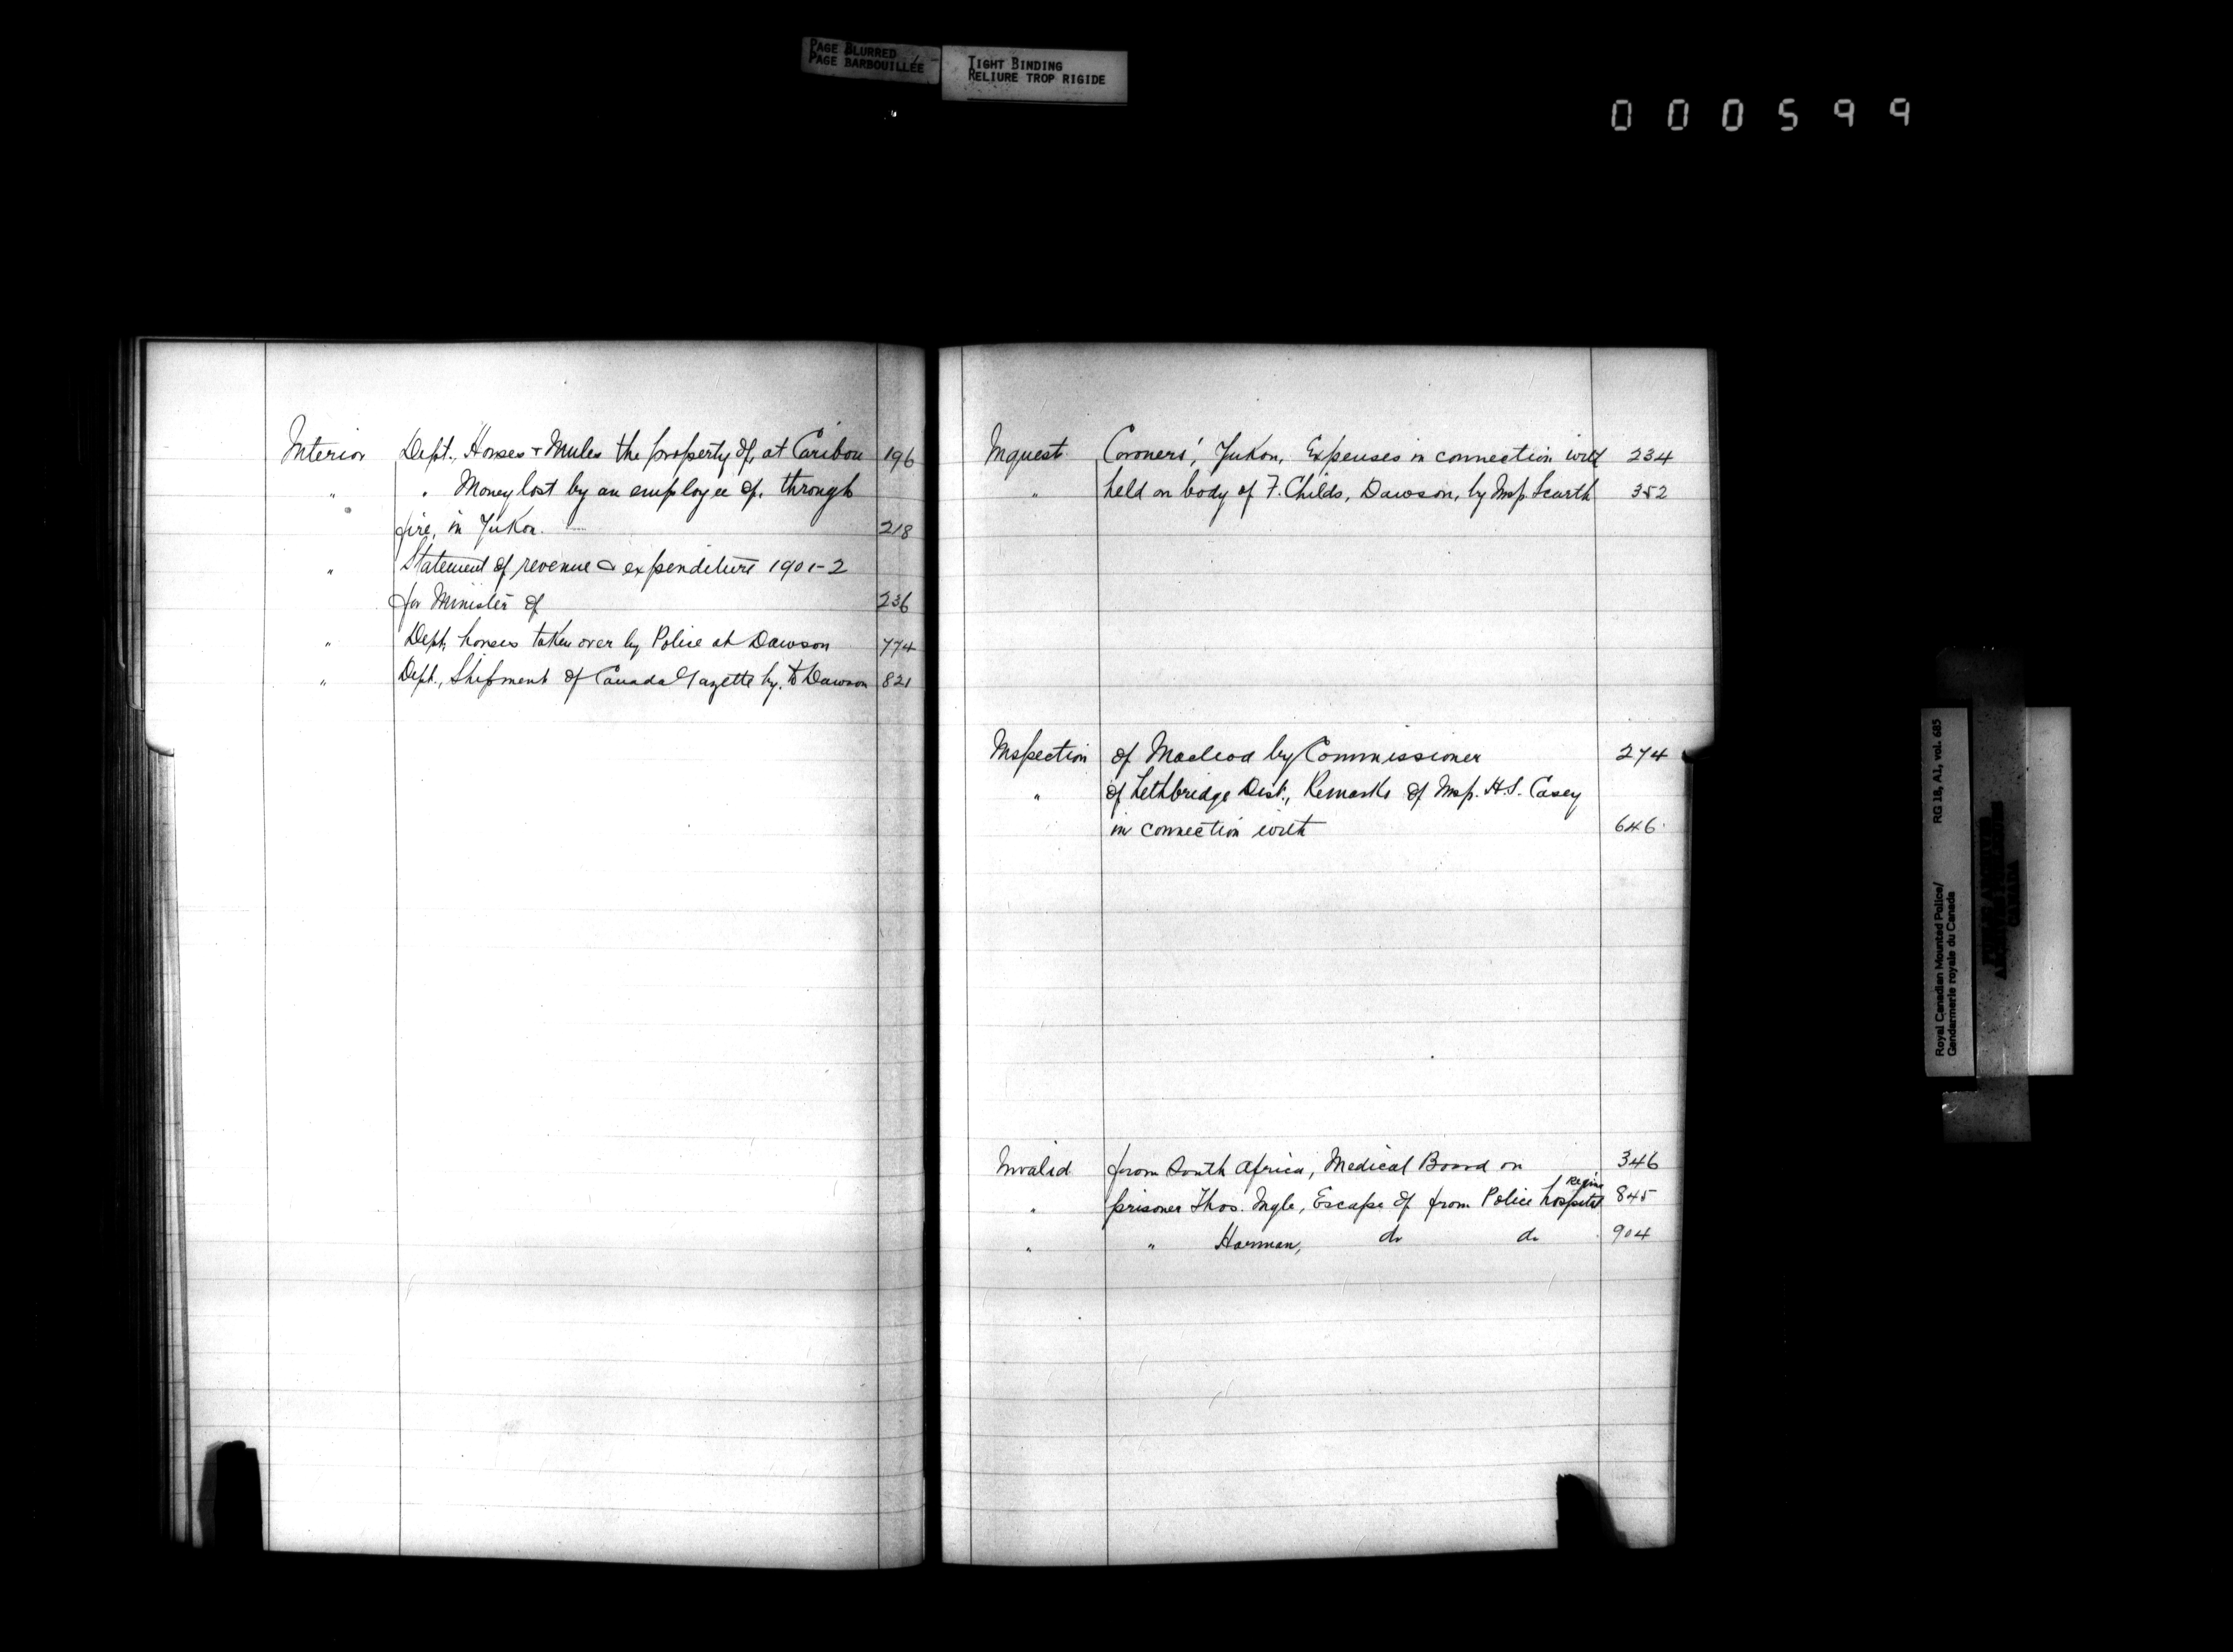 PAGE BLURRED
PAGE BARBOUILLÉE
TIGHT BINDING
RELIURE TROP RIGIDE
000599
Interior Dept., Horses + Mules the property of, at Caribou 196
" " Money lost by an employee of, through
fire, in Yukon. 218
" Statement of revenue & expenditure 1901-2
for Minister of 236
" Dept, horses taken over by Police at Dawson 774
" Dept., Shipment of Canada Gazette by, to Dawson 821
Inquests Coroners', Yukon, Expenses in connection with 234
" held on body of F. Childs, Dawson, by Insp. Scarth 352
Inspection of Macleod by Commissioner 274
" of Lethbridge Dist., Remarks of Insp. H.S. Casey
in connection with 646
Invalid from South Africa, Medical Board on 346
Regina
" prisoner Thos. Ingle, Escape of from Police hospital 845
" " Harman, do do 904
RG 18, A1, vol. 685
Royal Canadian Mounted Police/
Gendarmerie royale du Canada
PUBLIC ARCHIVES
ARCHIVES PUBLIQUES
CANADA